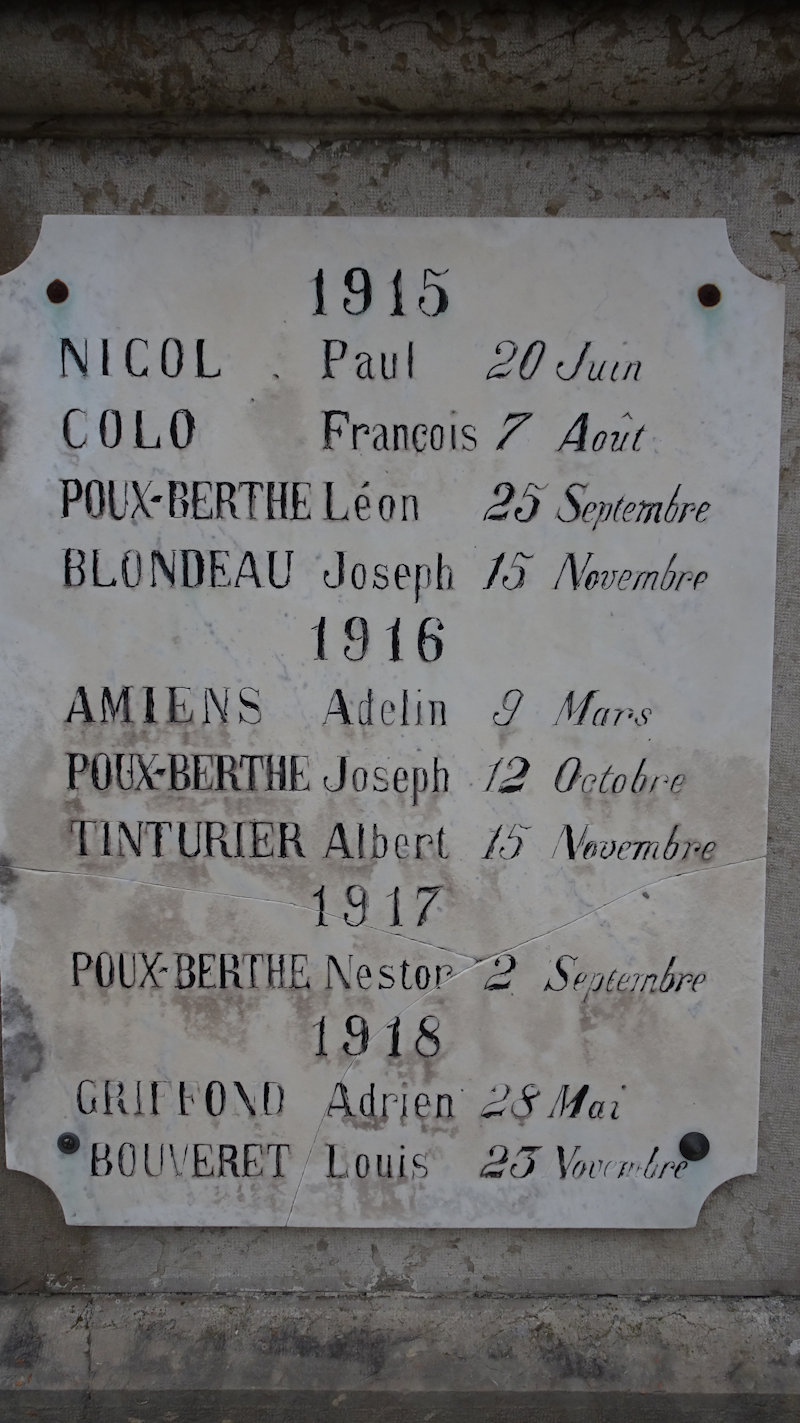 1915
NICOL Paul 20 Juin
COLO François 7 Août
POUX-BERTHE Léon 25 Septembre
BLONDEAU Joseph 15 Novembre
1916
AMIENS Adelin 9 Mars
POUX-BERTHE Joseph 12 Octobre
TINTURIER Albert 15 Novembre
1917
POUX-BERTHE Nestor 2 Septembre
1918
GRIFFOND Adrien 28 Mai
BOUVERET Louis 23 Novembre